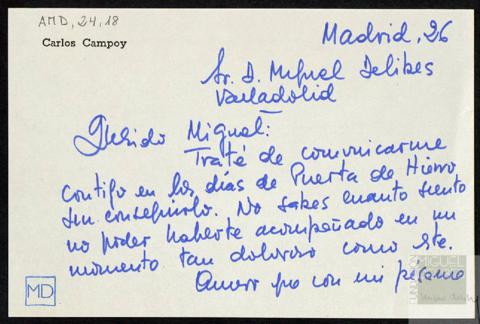 AMD, 24, 18
Carlos Campoy
Madrid, 26
Sr. D. Miguel Delibes
Valladolid
Querido Miguel:
Traté de comunicarme
contigo en los días de Puerta de Hierro
sin conseguirlo. No sabes cuanto siento
no poder haberte acompañado en un
momento tan doloroso como éste.
Quiero que con mi pésame
MD
FUNDACIÓN
MIGUEL
DELIBES